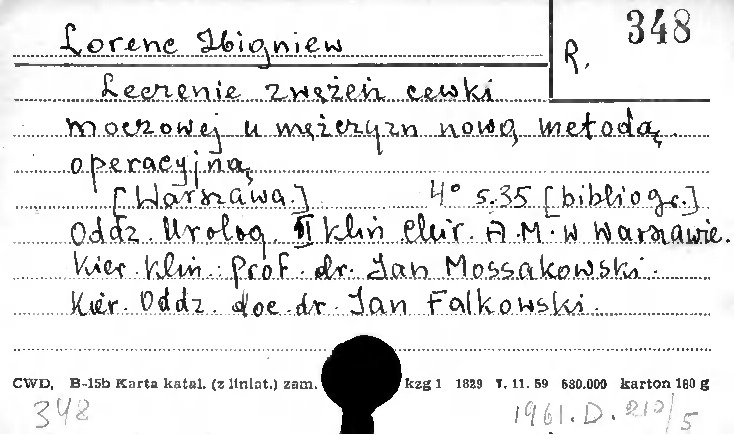 Lorenc Zbigniew
R. 348
Leczenie zwężeń cewki
moczowej u mężczyzn nową metodą
operacyjną
[Warszawa.] 4° s.35 [bibliogr.]
Oddz. Urolog. II Klin Chir. A.M. w Warszawie.
Kier. Klin: Prof. dr. Jan Mossakowski.
Kier. Oddz. doc. dr. Jan Falkowski.
CWD, B-15b Karta katal. (z liniat.) zam. kzg 1 1829 T. 11. 59 680.000 karton 180 g
348 1961. D. 210/5